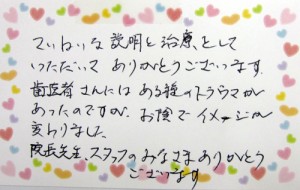 ていねいな説明と治療をして
いただいて ありがとうございます.
歯医者さんには ある種のトラウマが
あったのですが、お陰で イメージが
変わりました
院長先生、スタッフのみなさまありがとう
ございます